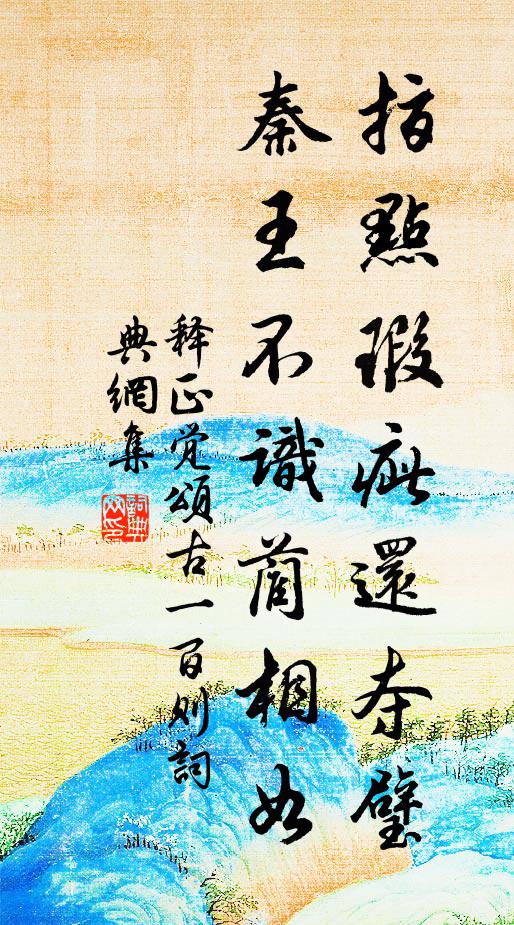 指點瑕疵還夺璧
秦王不識藺相如
释正觉頌古一百则詞
典網集